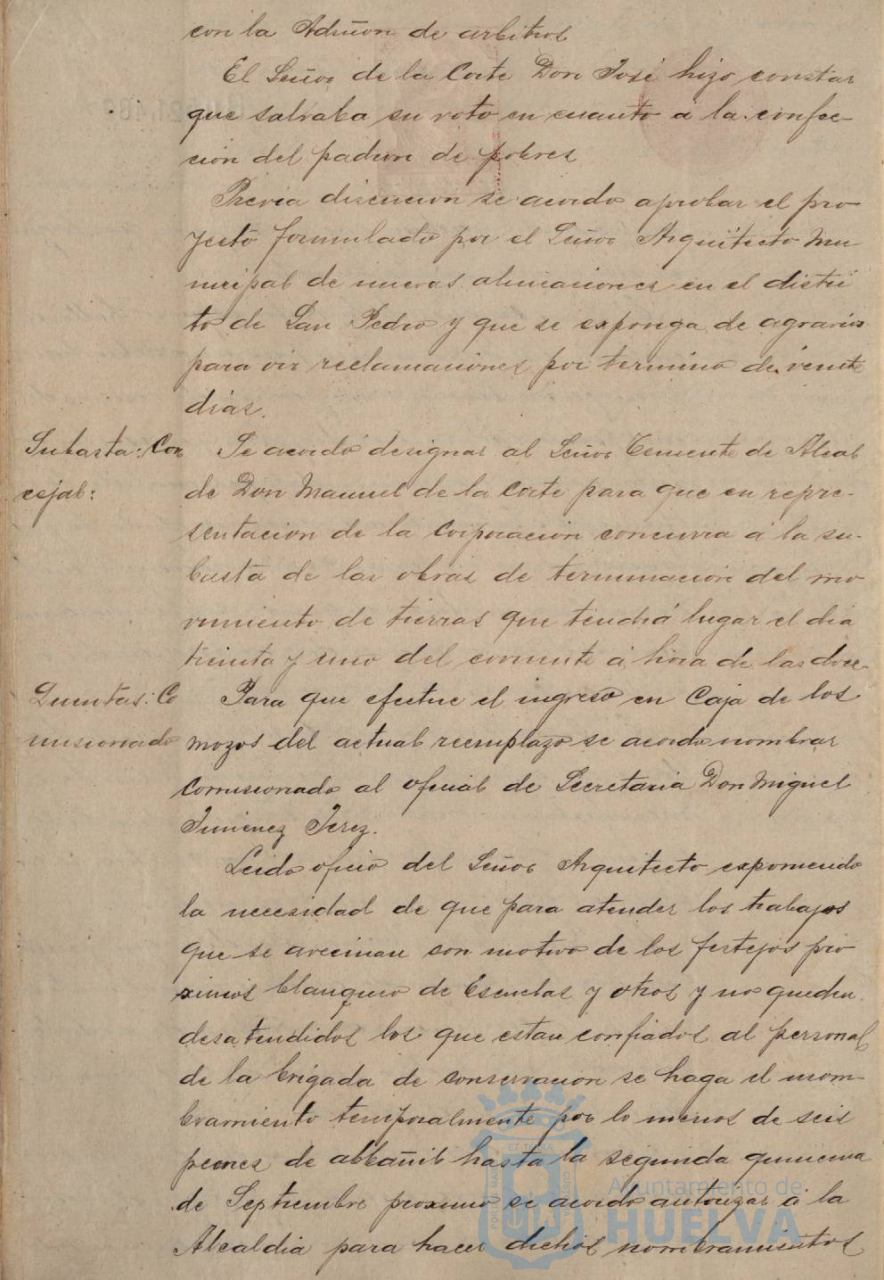 con la Admón de arbitros
El Señor de la Corte Don José hizo constar
que salvaba su voto en cuanto á la confec-
ción del padron de pobres
Previa discucion se acordo aprobar el pro
yecto formulado por el Señor Arquitecto Mu
nicipal de nuevas alineaciones en el distri
to de San Pedro y que se exponga de agravios
para oir reclamaciones por termino de veinte
dias.
Subasta: Con
cejal:
Se acordó designar al Señor Teniente de Alcal
de Don Manuel de la Corte para que en repre-
sentacion de la Corporación concurra á la su-
basta de las obras de terminacion del mo
vimiento de tierras que tendrá lugar el dia
treinta y uno del corriente á hora de las doce-
Quintas: Co
misionado
Para que efectue el ingreso en Caja de los
mozos del actual reemplazo se acordo nombrar
Comisionado al oficial de Secretaria Don Miguel
Jimenez Jerez.
Leido oficio del Señor Arquitecto exponiendo
la necesidad de que para atender los trabajos
que se avecinan con motivo de los festejos pro
ximos blanqueo de Escuelas y otros y no queden
desatendidos los que estan confiados al personal
de la brigada de conservacion se haga el nom-
bramiento temporalmente por lo menos de seis
peones de albañil hasta la segunda quincena
de Septiembre proximo se acordo autorizar á la
Alcaldia para hacer dichos nombramientos
Ayuntamiento de
HUELVA